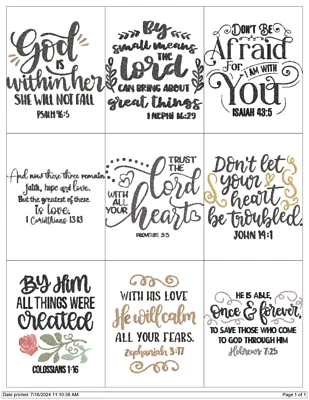 God
is
within her
SHE WILL NOT FALL
PSALM 46:5
By
small means
THE
Lord
CAN BRING ABOUT
great things
1 NEPHI 16:29
DON'T BE
Afraid
For I AM WITH
You
ISAIAH 43:5
And now these three remain
faith, hope and love.
But the greatest of these
is love.
1 Corinthians 13:13
TRUST
THE
lord
WITH
ALL
YOUR
heart
PROVERBS 3:5
Don't let
your
heart
be troubled.
JOHN 14:1
By Him
ALL THINGS WERE
created
COLOSSIANS 1:16
WITH HIS LOVE
He will calm
ALL YOUR FEARS.
Zephaniah 3:17
HE IS ABLE,
Once & forever,
TO SAVE THOSE WHO COME
TO GOD THROUGH HIM
Hebrews 7:25
Date printed: 7/16/2024 11:10:36 AM
Page 1 of 1